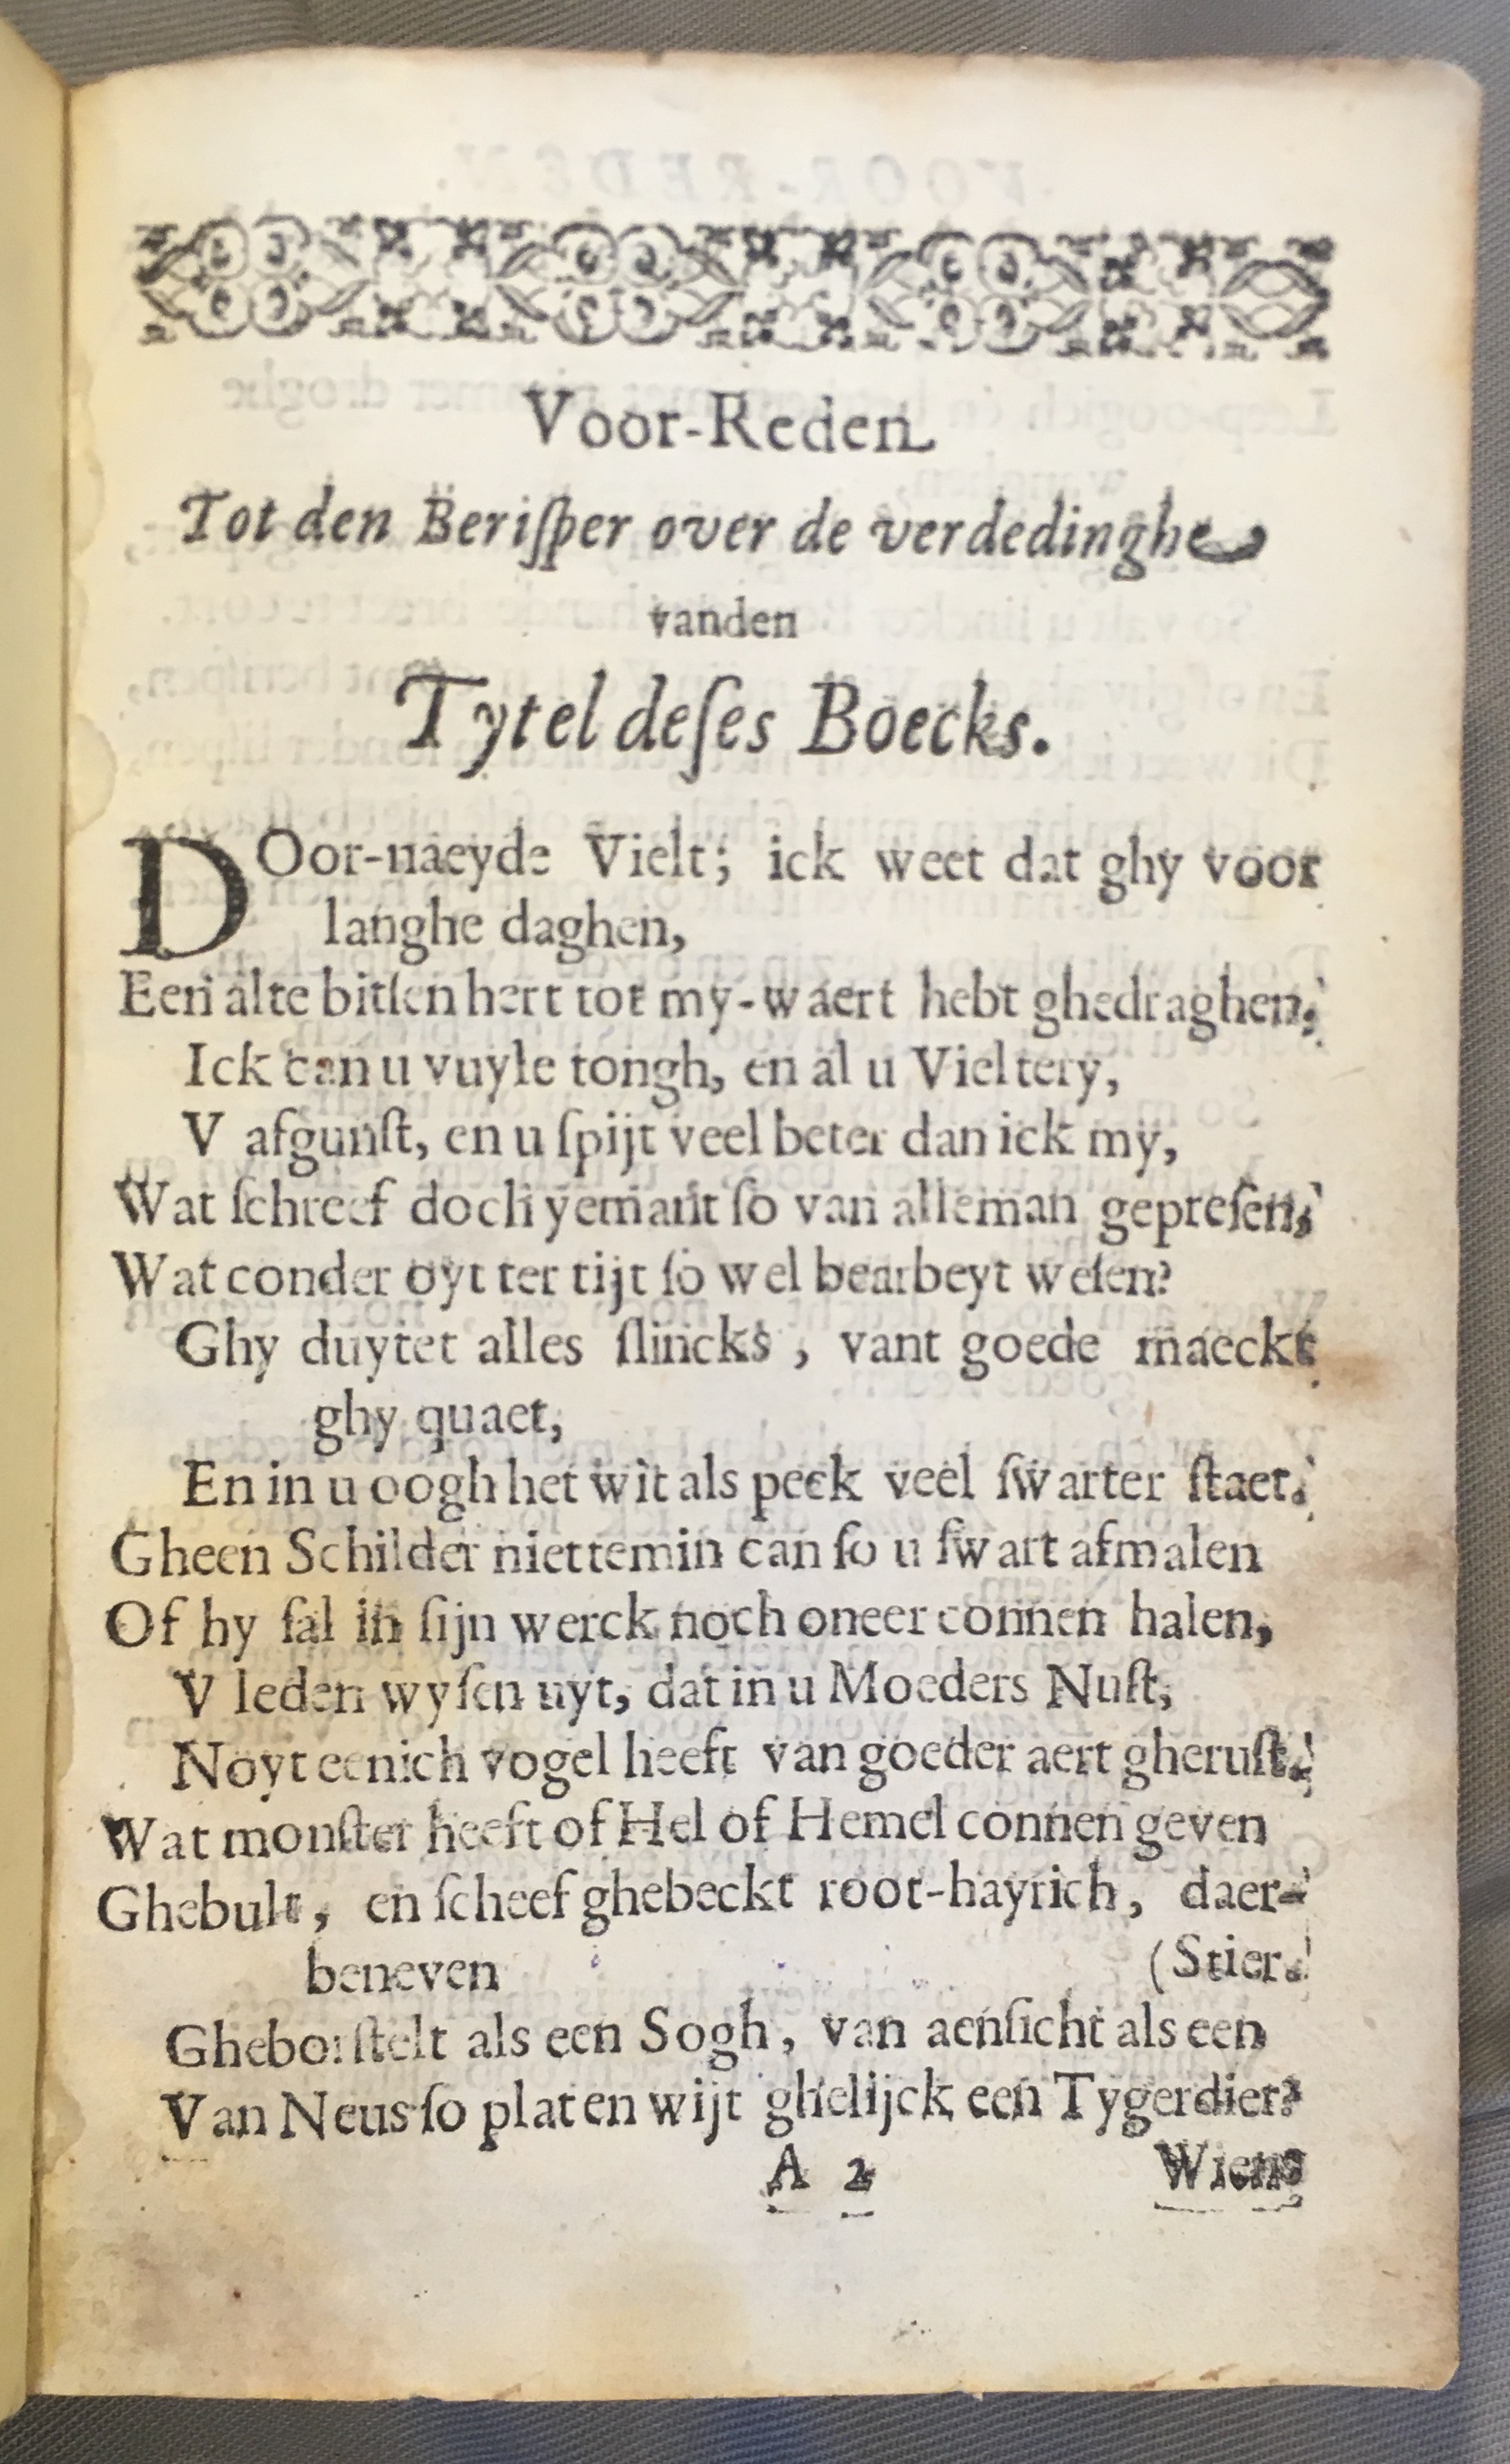 Voor-Reden
Tot den Beriſper over de verdedinghe
vanden
Tytel deſes Boecks.
DOor-naeyde Vielt; ick weet dat ghy voor
langhe daghen,
Een alte bitſen hert tot my-waert hebt ghedraghen.
Ick can u vuyle tongh, en al u Vieltery,
V afgunſt, en u ſpijt veel beter dan ick my,
Wat ſchreef doch yemant ſo van alleman gepreſen,
Wat conder oyt ter tijt ſo wel bearbeyt weſen?
Ghy duytet alles ſlincks, vant goede maeckt
ghy quaet,
En in u oogh het wit als peck veel ſwarter ſtaet.
Gheen Schilder niettemin can ſo u ſwart afmalen
Of hy ſal in ſijn werck noch oneer connen halen,
V leden wyſen uyt, dat in u Moeders Nuſt,
Noyt eenich vogel heeft van goeder aert gheruſt.
Wat monſter heeft of Hel of Hemel connen geven
Ghebult, en ſcheef ghebeckt root-hayrich, daer-
beneven (Stier.
Gheborſtelt als een Sogh, van aenſicht als een
Van Neus ſo plat en wijt ghelijck een Tygerdier?
A 2 Wiens